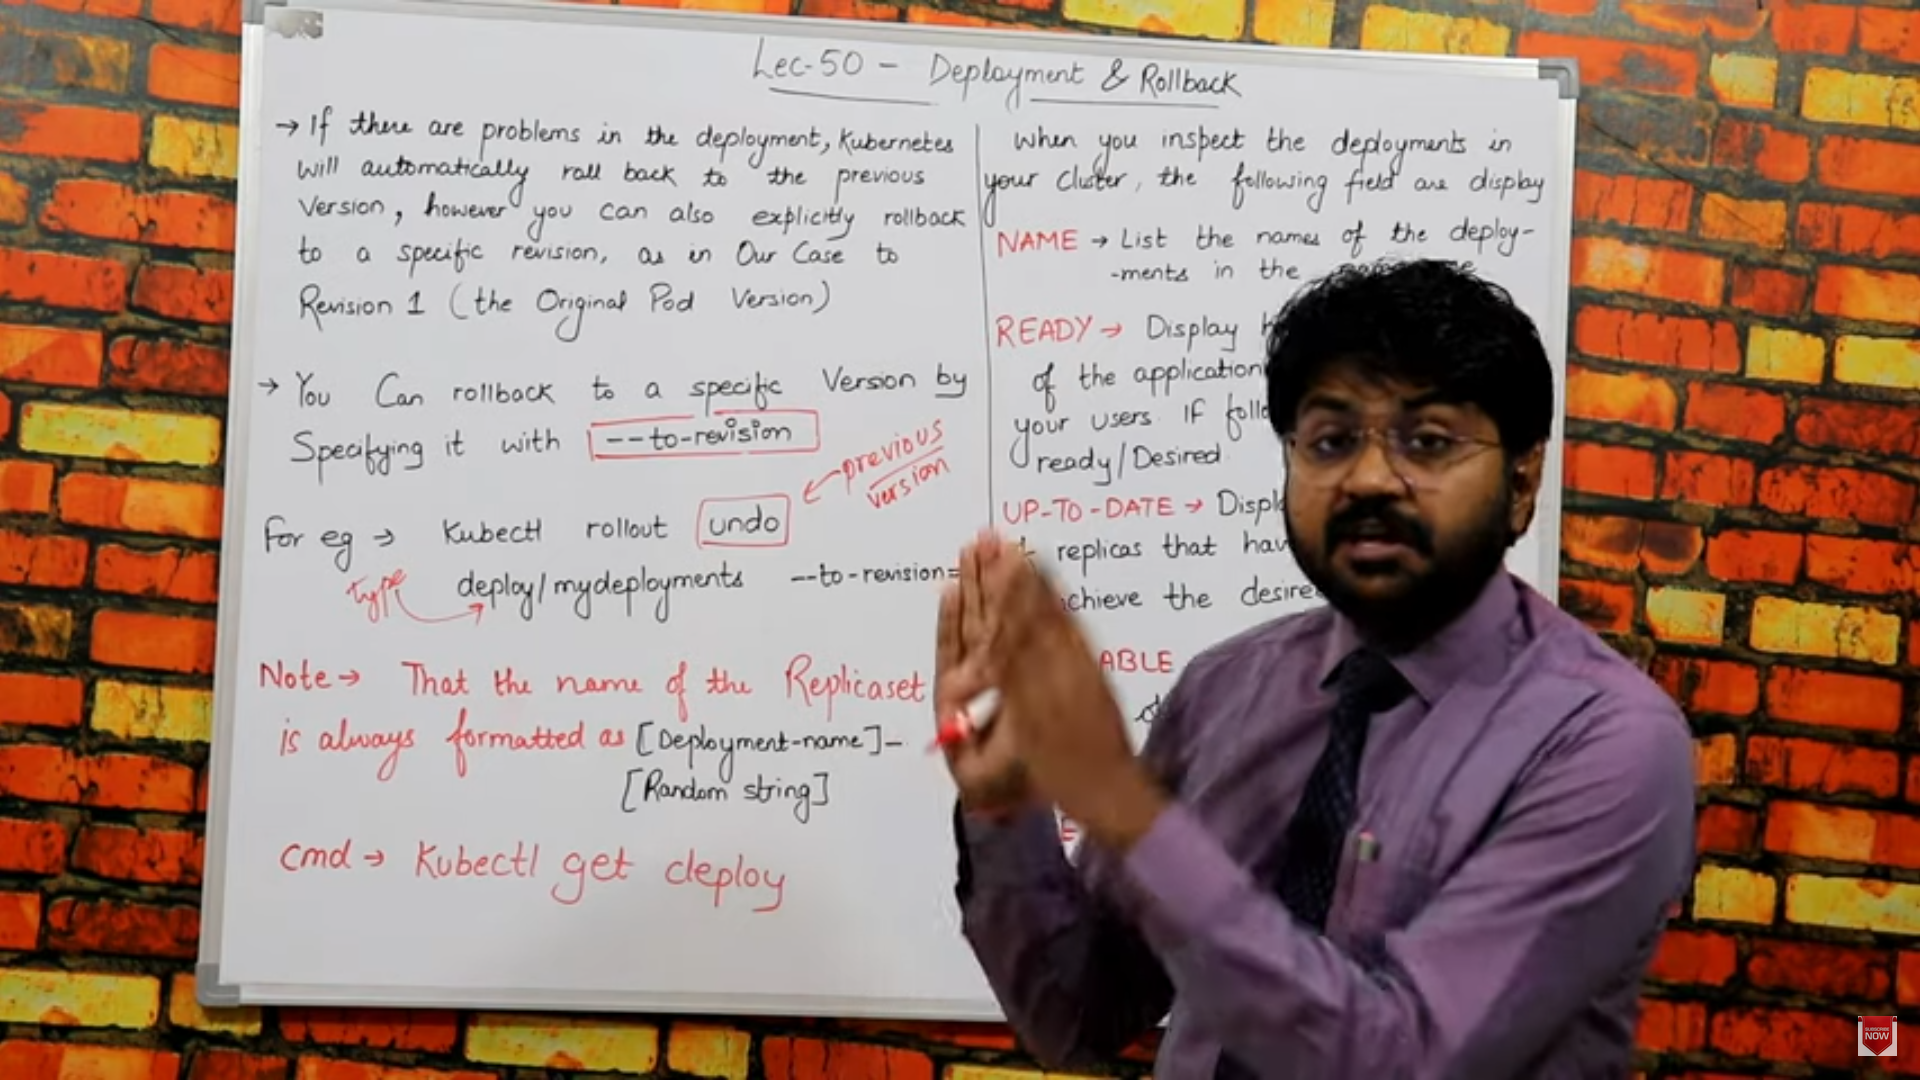 Lec-50 - Deployment & Rollback
→ If there are problems in the deployment, Kubernetes
will automatically roll back to the previous
Version, however you can also explicitly rollback
to a specific revision, as in Our Case to
Revision 1 (the Original Pod Version)
→ You Can rollback to a specific Version by
Specifying it with --to-revision
previous
version
For eg → Kubectl rollout undo
type
deploy/mydeployments --to-revision=
Note → That the name of the Replicaset
is always formatted as [Deployment-name]-
[Random string]
cmd → Kubectl get deploy
when you inspect the deployments in
your cluster, the following field are display
NAME → List the names of the deploy-
-ments in the
READY → Display
of the application
your users. If
ready/Desired
UP-TO-DATE →
replicas that
the
SUBSCRIBE
NOW